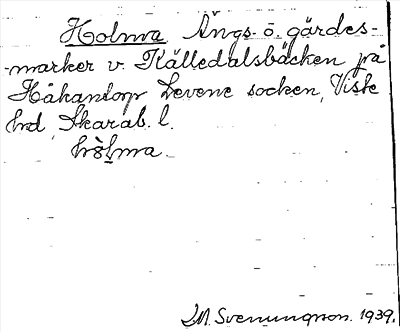 Holma Ängs- o. gärdes-
-marker v. Källedalsbäcken på
Håkantorp Levene socken, Viste
hd, Skarab. l.
hòlma.
S.M. Svenungson. 1939.